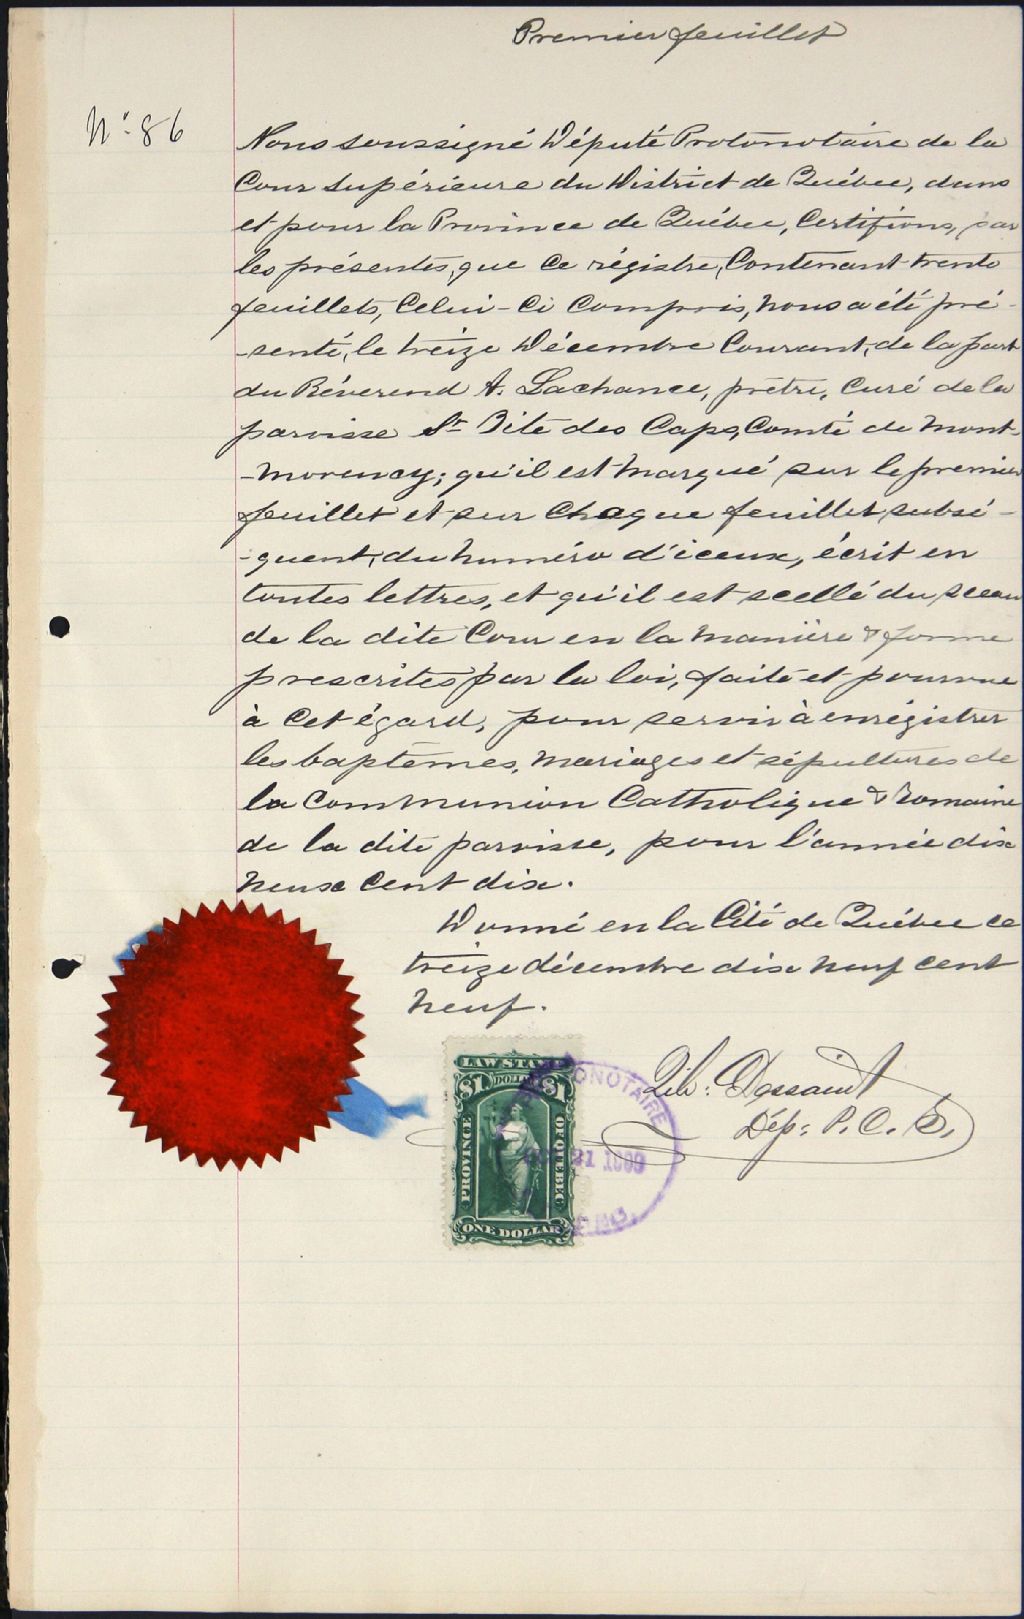 Premier feuillet
No. 86
Nous soussigné Député Protonotaire de la
Cour Supérieure du District de Québec, dans
et pour la Province de Québec, Certifions, par
les présentes, que ce régistre, Contenant trente
feuillets, Celui-Ci Compris, nous a été pré-
-senté, le treize Décembre Courant, de la part
du Révérend A. Lachance, prêtre, Curé de la
paroisse St Tite des Caps, Comté de Mont-
-morency; qu'il est marqué sur le premier
feuillet et sur chaque feuillet subsé-
-quent, du numéro d'iceux, écrit en
toutes lettres, et qu'il est scellé du sceau
de la dite Cour en la manière & forme
prescrites par la loi, faite et pourvue
à cet égard, pour servir à enrégistrer
les baptêmes, mariages et sépultures de
la Communion Catholique & Romaine
de la dite paroisse, pour l'année dix
neuf Cent dix.
Donné en la Cité de Québec ce
treize décembre dix neuf cent
neuf.
Dép: P. C. S.
LAW STAMP
$1 DOLLAR $1
PROVINCE OF QUEBEC
ONE DOLLAR
PROTONOTAIRE
21 1909